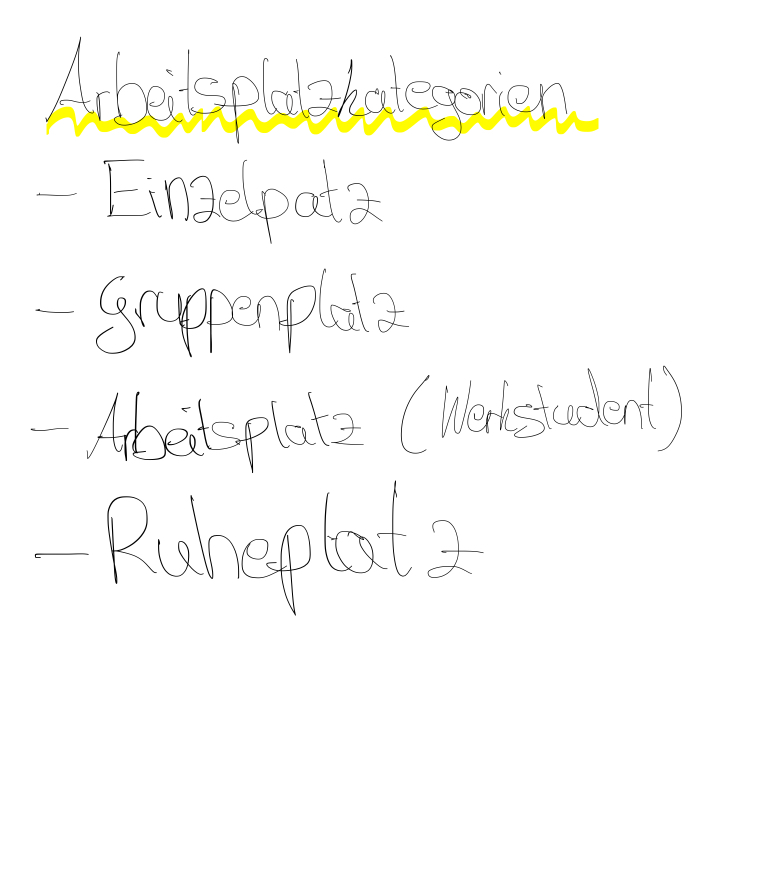 Arbeitsplatzkategorien
- Einzelpatz
- Gruppenplatz
- Arbeitsplatz (Werkstudent)
- Ruheplatz